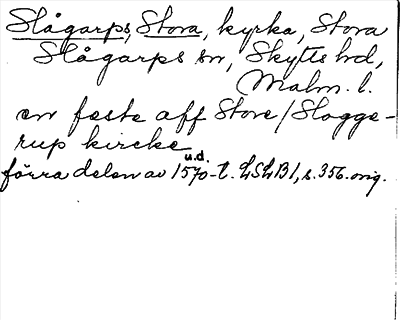 Slågarps, Stora, kyrka, Stora
Slågarps sn, Skytts hd,
Malm. l.
en feste aff Store / Slogge-
rup kircke
u.d.
förra delen av 1570-t. LSLB1, s. 356. orig.